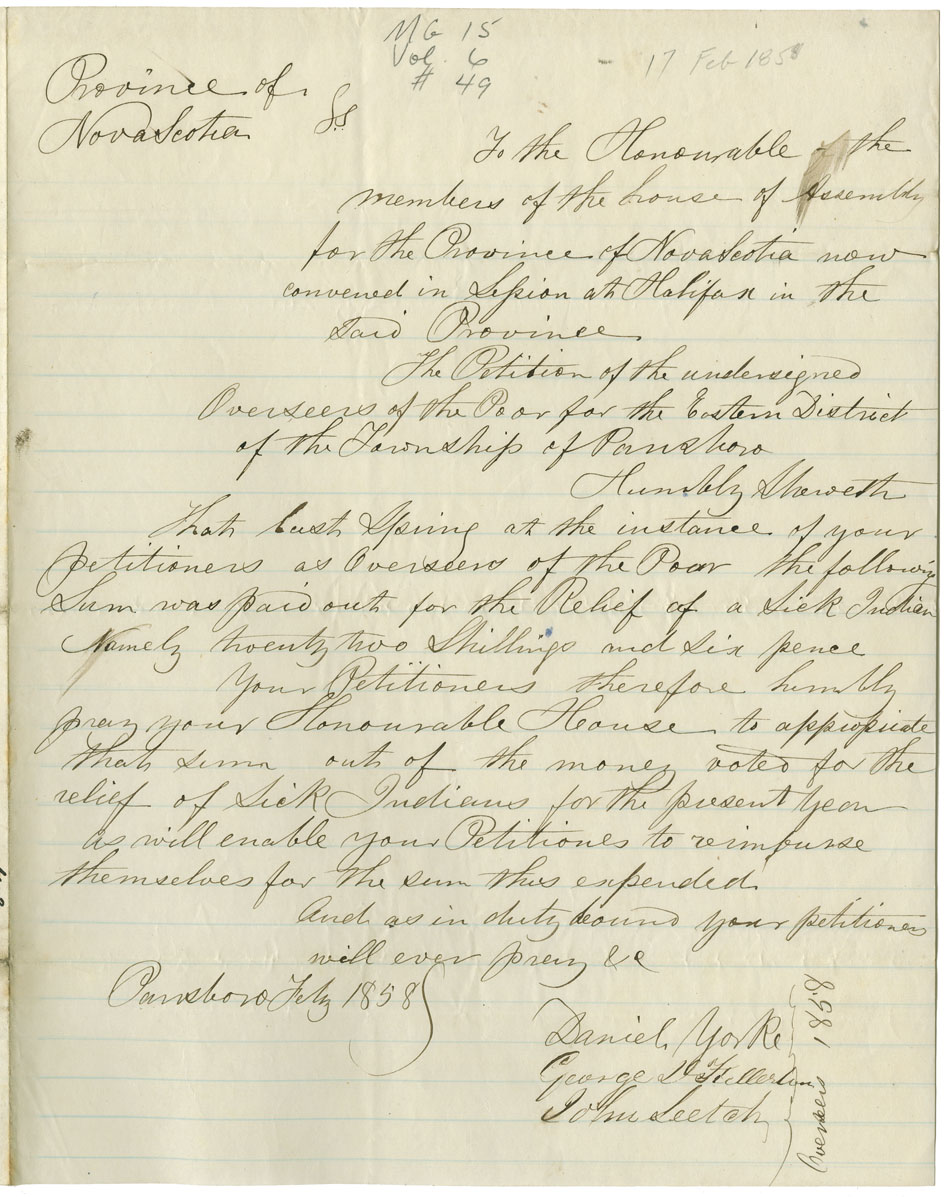 MG 15
Vol. 6
# 49
17 Feb 1858
Province of
Nova Scotia
SS
To the Honourable the
members of the house of Assembly
for the Province of NovaScotia now
convened in Session at Halifax in the
Said Province
The Petition of the undersigned
Overseers of the Poor for the Eastern District
of the Township of Parrsboro
Humbly Sheweth
That last Spring at the instance of your
petitioners as Overseers of the Poor the following
Sum was paid out for the Relief of a Sick Indian
Namely twenty two Shillings and Six pence
Your Petitioners therefore humbly
pray your Honourable House to appropriate
that sum out of the money voted for the
relief of Sick Indians for the present year
as will enable your Petitiones to reimburse
themselves for the sum thus expended
And as in duty bound your petitioners
will ever pray &c
Parrsboro Feby 1858
Daniel Yorke
George D Fullerton
John Leetch
Overseers 1858